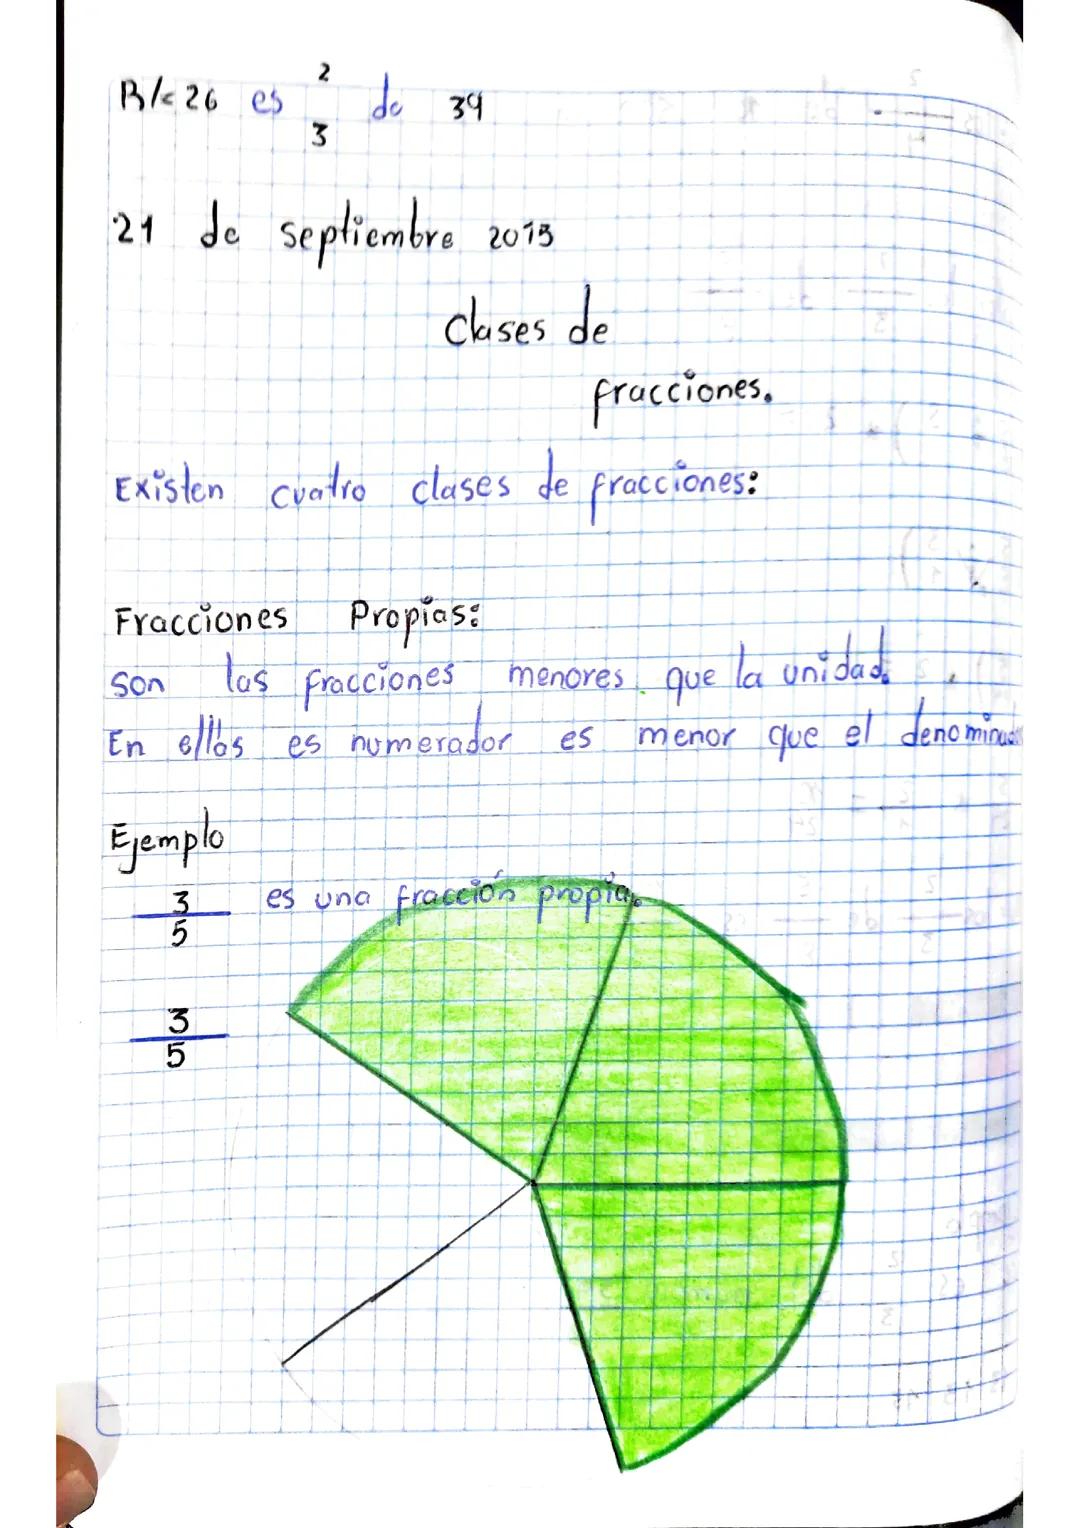 R/= 26 es 2/3 de 39
21 de septiembre 2015
Clases de
fracciones.
Existen cuatro clases de fracciones:
Fracciones Propias:
son las fracciones menores que la unidad.
En ellas es numerador es menor que el denominador
Ejemplo
3/5 es una fracción propia.
3/5